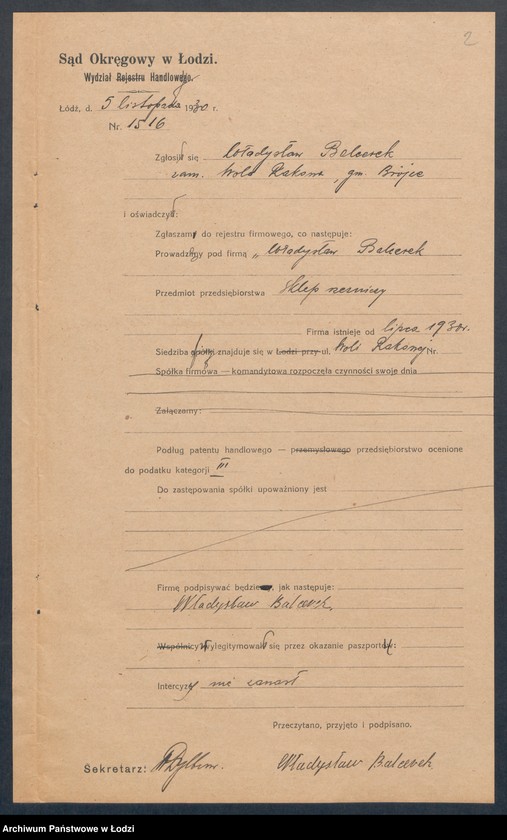 2
Sąd Okręgowy w Łodzi.
Wydział Rejestru Handlowego.
Łódź, d. 5 listopada 1930 r.
Nr. 1516
Zgłosił się Władysław Balcerek
zam. Wola Rakowa, gm. Brójce
i oświadczył:
Zgłaszam do rejestru firmowego, co następuje:
Prowadzę pod firmą „Władysław Balcerek
Przedmiot przedsiębiorstwa Sklep rzeźniczy
Firma istnieje od lipca 1930 r.
Siedziba spółki znajduje się w Łodzi przy ul. Woli Rakowej Nr.
Spółka firmowa — komandytowa rozpoczęła czynności swoje dnia
Załączamy:
Podług patentu handlowego — przemysłowego przedsiębiorstwo ocenione
do podatku kategorji III
Do zastępowania spółki upoważniony jest
Firmę podpisywać będzie, jak następuje:
Władysław Balcerek
Wspólnicy wylegitymował się przez okazanie paszportu:
Intercyzy nie zawarł
Przeczytano, przyjęto i podpisano.
Sekretarz: Władysław Balcerek
Archiwum Państwowe w Łodzi